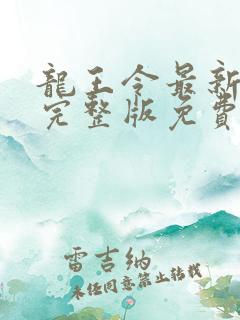 龍王令最新
完整版免費
雷吉納
未任同意禁止转载